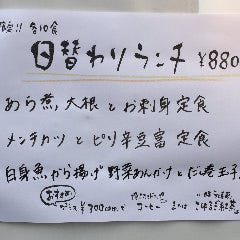 限定!! 各10食
日替わりランチ ¥880
あら煮,大根とお刺身定食
メンチカツとピリ辛豆富定食
白身魚から揚げ野菜あんかけとだし巻玉子
おすすめ
¥300
コーヒー または